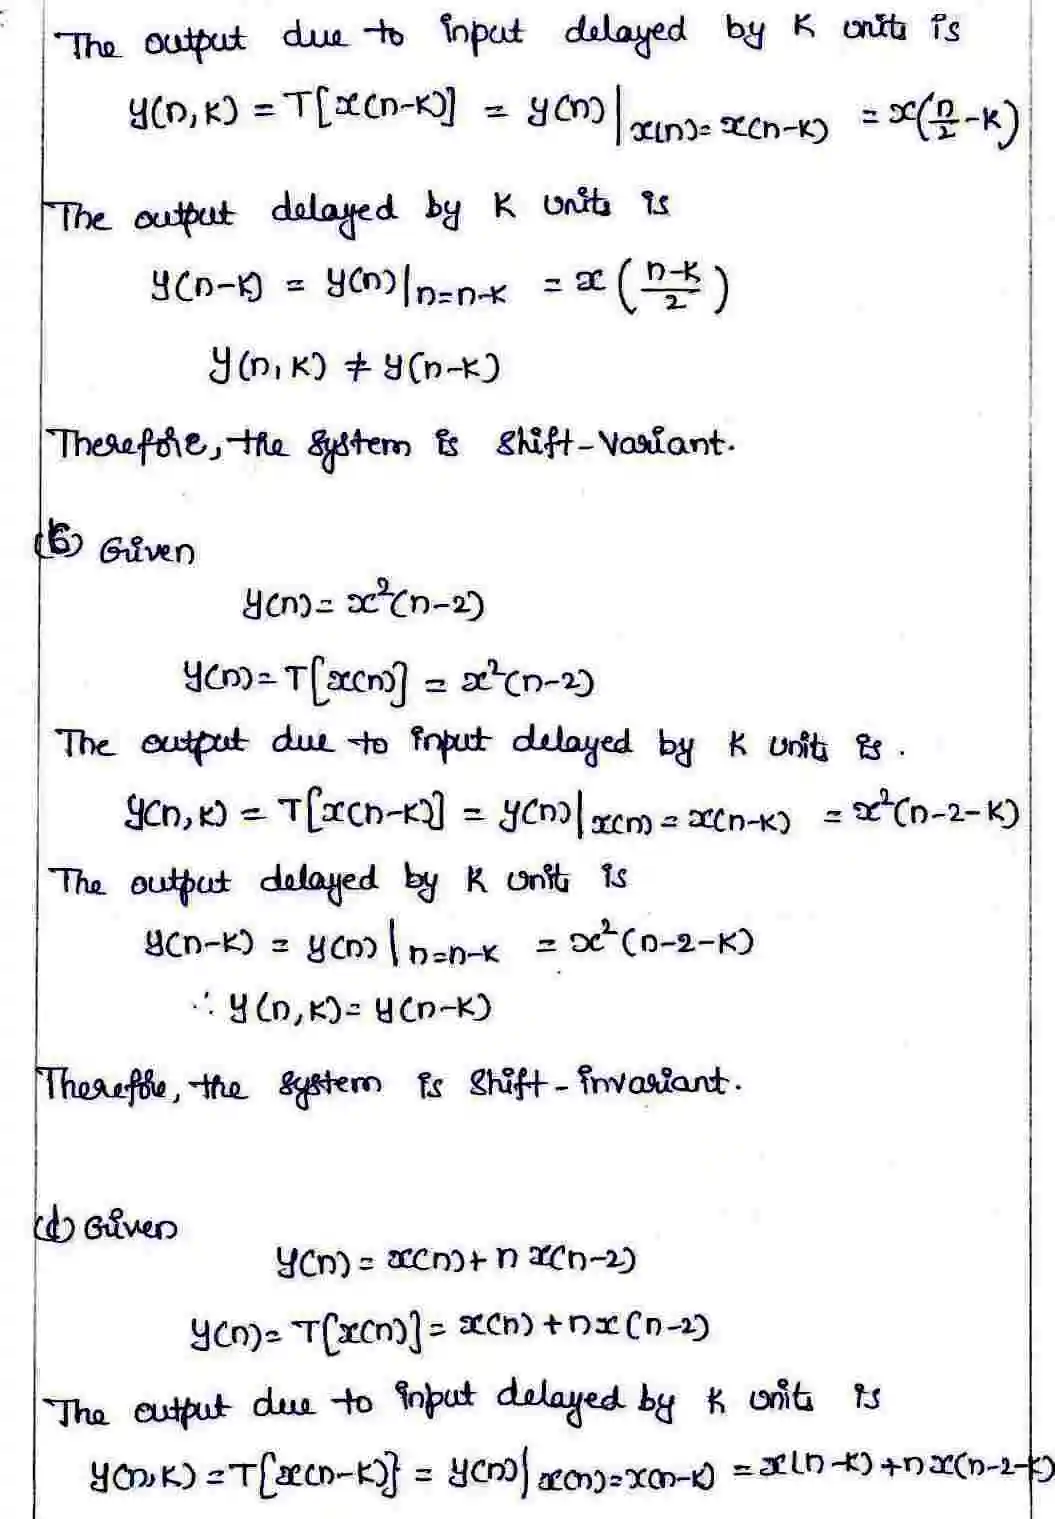 The output due to input delayed by K units is
y(n,K) = T[x(n-K)] = y(n)|x(n)=x(n-K) = x(n/2-K)
The output delayed by K units is
y(n-K) = y(n)|n=n-K = x(n-K/2)
y(n,K) ≠ y(n-K)
Therefore, the system is shift-variant.
(b) Given
y(n)= x²(n-2)
y(n)= T[x(n)] = x²(n-2)
The output due to input delayed by K units is.
y(n,K) = T[x(n-K)] = y(n)|x(n)=x(n-K) = x²(n-2-K)
The output delayed by K units is
y(n-K) = y(n)|n=n-K = x²(n-2-K)
∴ y(n,K)= y(n-K)
Therefore, the system is shift-invariant.
(d) Given
y(n) = x(n)+ n x(n-2)
y(n)= T[x(n)]= x(n)+nx(n-2)
The output due to input delayed by K units is
y(n,K) =T[x(n-K)} = y(n)|x(n)=x(n-K) =x(n-K)+nx(n-2-K)